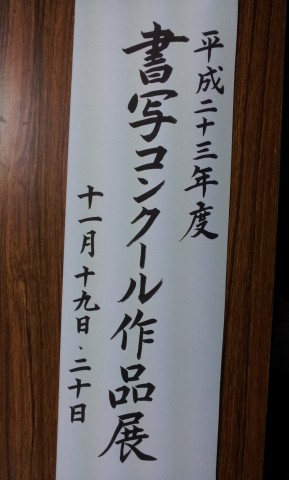 平成二十三年度
書写コンクール作品展
十一月十九日・二十日